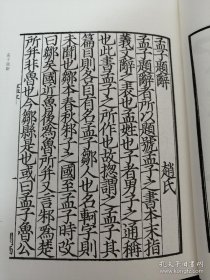 孟子題辭　趙氏
孟子題辭者所以題號孟子之書本末指
義文辭之表也孟姓也子者男子之通稱
也此書孟子之所作也故揔謂之孟子其
篇目則各自有名孟子鄒人也名軻字則
未聞也鄒本春秋邾子之國至孟子時改
曰鄒矣國近魯後為魯所并又言邾為楚
所并非魯也今鄒縣是也或曰孟子魯